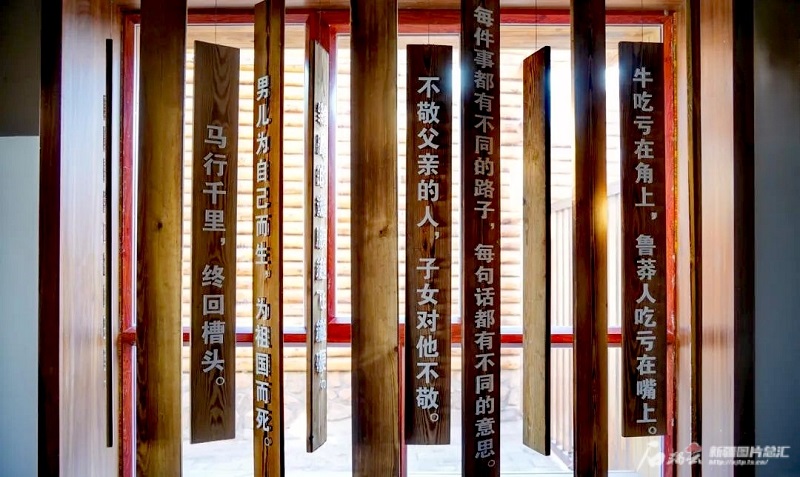 马行千里，终回槽头。
男儿为自己而生，为祖国而死。
不敬父亲的人，子女对他不敬。
每件事都有不同的路子，每句话都有不同的意思。
牛吃亏在角上，鲁莽人吃亏在嘴上。
新疆图片总汇